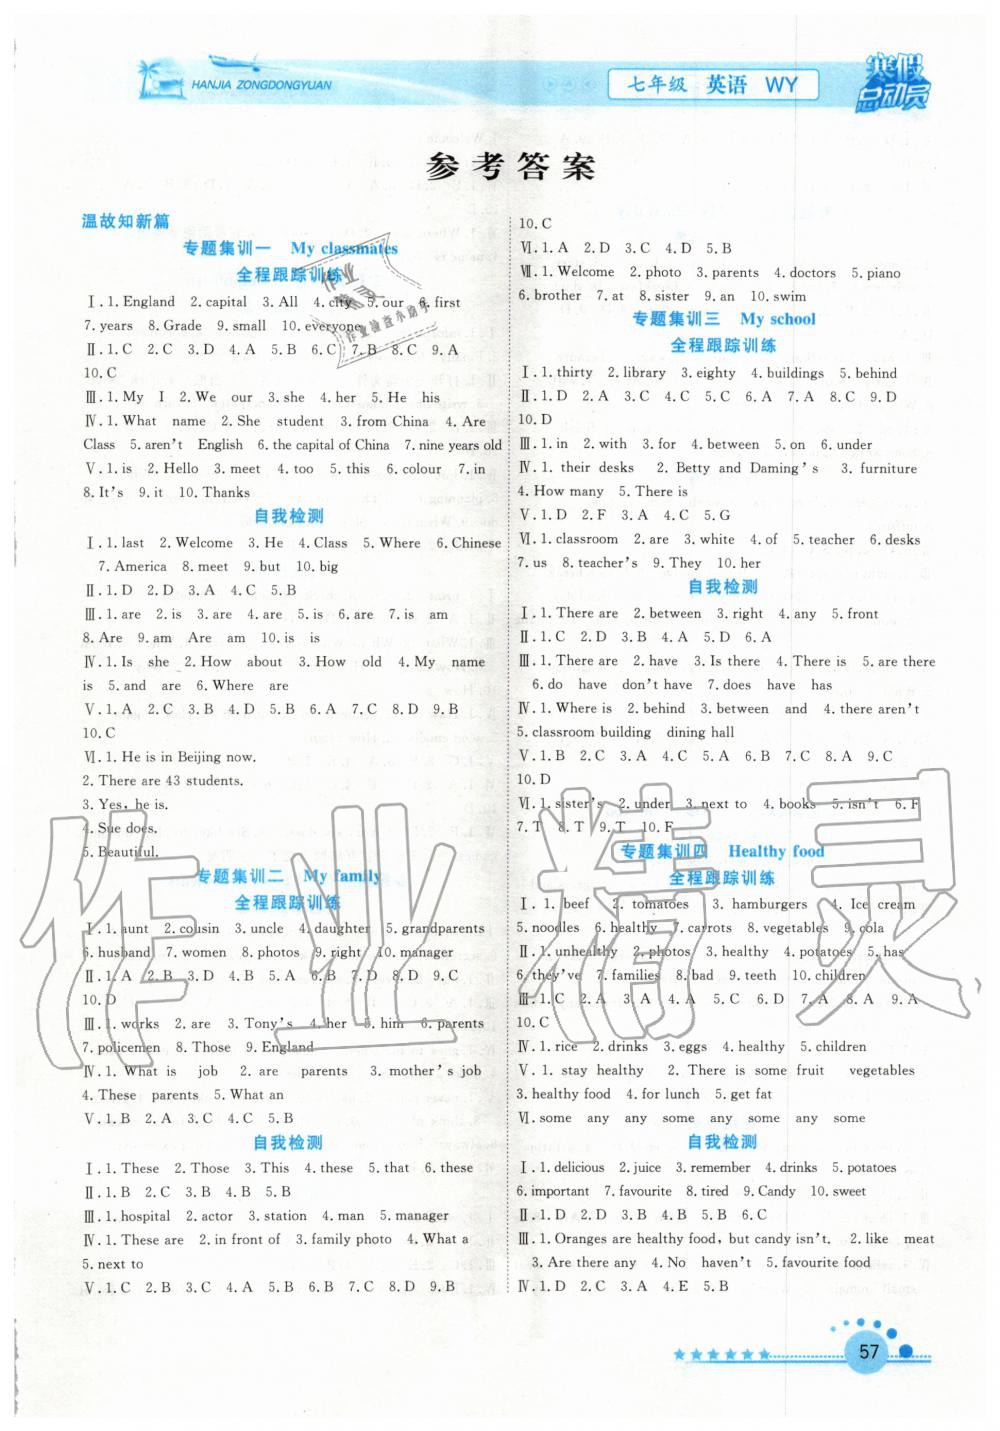 HANJIA ZONGDONGYUAN
七年级 英语 WY
寒假
总动员
参考答案
温故知新篇
专题集训一 My classmates
全程跟踪训练
Ⅰ. 1. England 2. capital 3. All 4. city 5. our 6. first
7. years 8. Grade 9. small 10. everyone
Ⅱ. 1. C 2. C 3. D 4. A 5. B 6. C 7. B 8. C 9. A
10. C
Ⅲ. 1. My I 2. We our 3. she 4. her 5. He his
Ⅳ. 1. What name 2. She student 3. from China 4. Are
Class 5. aren't English 6. the capital of China 7. nine years old
Ⅴ. 1. is 2. Hello 3. meet 4. too 5. this 6. colour 7. in
8. It's 9. it 10. Thanks
自我检测
Ⅰ. 1. last 2. Welcome 3. He 4. Class 5. Where 6. Chinese
7. America 8. meet 9. but 10. big
Ⅱ. 1. D 2. D 3. A 4. C 5. B
Ⅲ. 1. are 2. is 3. are 4. are 5. is 6. are 7. is am
8. Are 9. am Are am 10. is is
Ⅳ. 1. Is she 2. How about 3. How old 4. My name
is 5. and are 6. Where are
Ⅴ. 1. A 2. C 3. B 4. D 5. B 6. A 7. C 8. D 9. B
10. C
Ⅵ. 1. He is in Beijing now.
2. There are 43 students.
3. Yes, he is.
4. Sue does.
5. Beautiful.
专题集训二 My family
全程跟踪训练
Ⅰ. 1. aunt 2. cousin 3. uncle 4. daughter 5. grandparents
6. husband 7. women 8. photos 9. right 10. manager
Ⅱ. 1. A 2. B 3. C 4. B 5. A 6. B 7. D 8. D 9. C
10. D
Ⅲ. 1. works 2. are 3. Tony's 4. her 5. him 6. parents
7. policemen 8. Those 9. England
Ⅳ. 1. What is job 2. are parents 3. mother's job
4. These parents 5. What an
Ⅴ. 1. B 2. A 3. C 4. C 5. B
自我检测
Ⅰ. 1. These 2. Those 3. This 4. these 5. that 6. these
Ⅱ. 1. B 2. C 3. C 4. D 5. B
Ⅲ. 1. hospital 2. actor 3. station 4. man 5. manager
Ⅳ. 1. These are 2. in front of 3. family photo 4. What a
5. next to
Ⅴ. 1. C 2. B 3. C 4. A 5. B 6. A 7. C 8. D 9. B
10. C
Ⅵ. 1. A 2. D 3. C 4. D 5. B
Ⅶ. 1. Welcome 2. photo 3. parents 4. doctors 5. piano
6. brother 7. at 8. sister 9. an 10. swim
专题集训三 My school
全程跟踪训练
Ⅰ. 1. thirty 2. library 3. eighty 4. buildings 5. behind
Ⅱ. 1. D 2. A 3. C 4. D 5. C 6. A 7. A 8. C 9. D
10. D
Ⅲ. 1. in 2. with 3. for 4. between 5. on 6. under
Ⅳ. 1. their desks 2. Betty and Daming's 3. furniture
4. How many 5. There is
Ⅴ. 1. D 2. F 3. A 4. C 5. G
Ⅵ. 1. classroom 2. are 3. white 4. of 5. teacher 6. desks
7. us 8. teacher's 9. They 10. her
自我检测
Ⅰ. 1. There are 2. between 3. right 4. any 5. front
Ⅱ. 1. C 2. D 3. B 4. A 5. D 6. A
Ⅲ. 1. There are 2. have 3. Is there 4. There is 5. are there
6. do have don't have 7. does have has
Ⅳ. 1. Where is 2. behind 3. between and 4. there aren't
5. classroom building dining hall
Ⅴ. 1. B 2. C 3. A 4. C 5. A 6. B 7. B 8. A 9. C
10. D
Ⅵ. 1. sister's 2. under 3. next to 4. books 5. isn't 6. F
7. T 8. T 9. T 10. F
专题集训四 Healthy food
全程跟踪训练
Ⅰ. 1. beef 2. tomatoes 3. hamburgers 4. Ice cream
5. noodles 6. healthy 7. carrots 8. vegetables 9. cola
Ⅱ. 1. unhealthy 2. photos 3. healthy 4. potatoes 5. has
6. they've 7. families 8. bad 9. teeth 10. children
Ⅲ. 1. C 2. A 3. A 4. A 5. C 6. D 7. A 8. A 9. A
10. C
Ⅳ. 1. rice 2. drinks 3. eggs 4. healthy 5. children
Ⅴ. 1. stay healthy 2. There is some fruit vegetables
3. healthy food 4. for lunch 5. get fat
Ⅵ. some any any some any any some
自我检测
Ⅰ. 1. delicious 2. juice 3. remember 4. drinks 5. potatoes
6. important 7. favourite 8. tired 9. Candy 10. sweet
Ⅱ. 1. D 2. D 3. B 4. B 5. B 6. C
Ⅲ. 1. Oranges are healthy food, but candy isn't. 2. like meat
3. Are there any 4. No haven't 5. favourite food
Ⅳ. 1. D 2. C 3. A 4. E 5. B
57
作业精灵
作业检查小助手